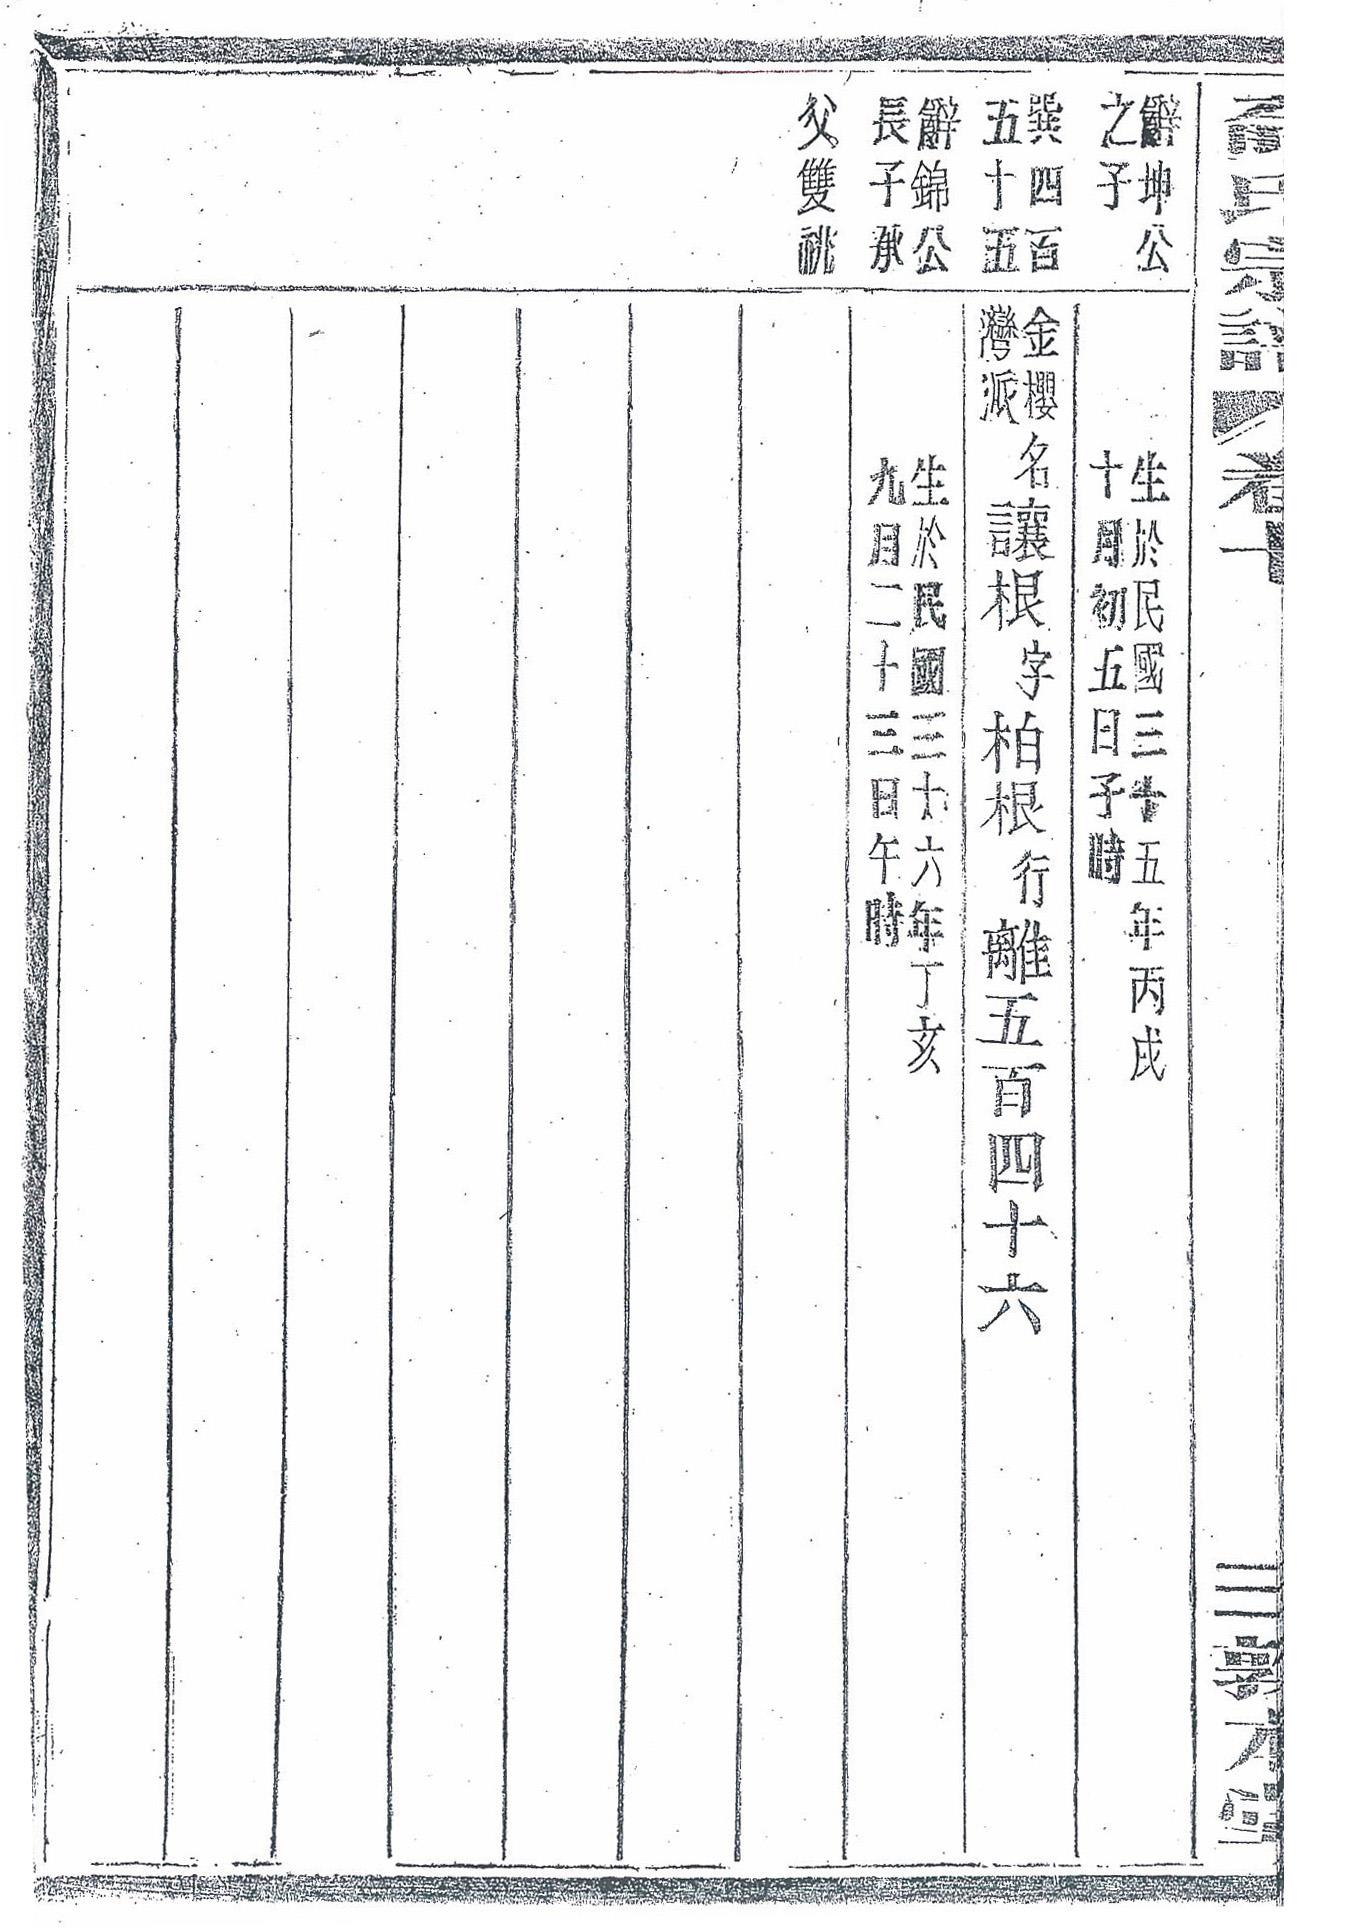 氏宗譜 卷十一
三 敦本堂
辭坤公
之子
生於民國三十五年丙戌
十月初五日子時
巽四百
五十五
金櫻
灣派
名讓根字柏根行離五百四十六
辭錦公
長子承
父雙祧
生於民國三十六年丁亥
九月二十三日午時